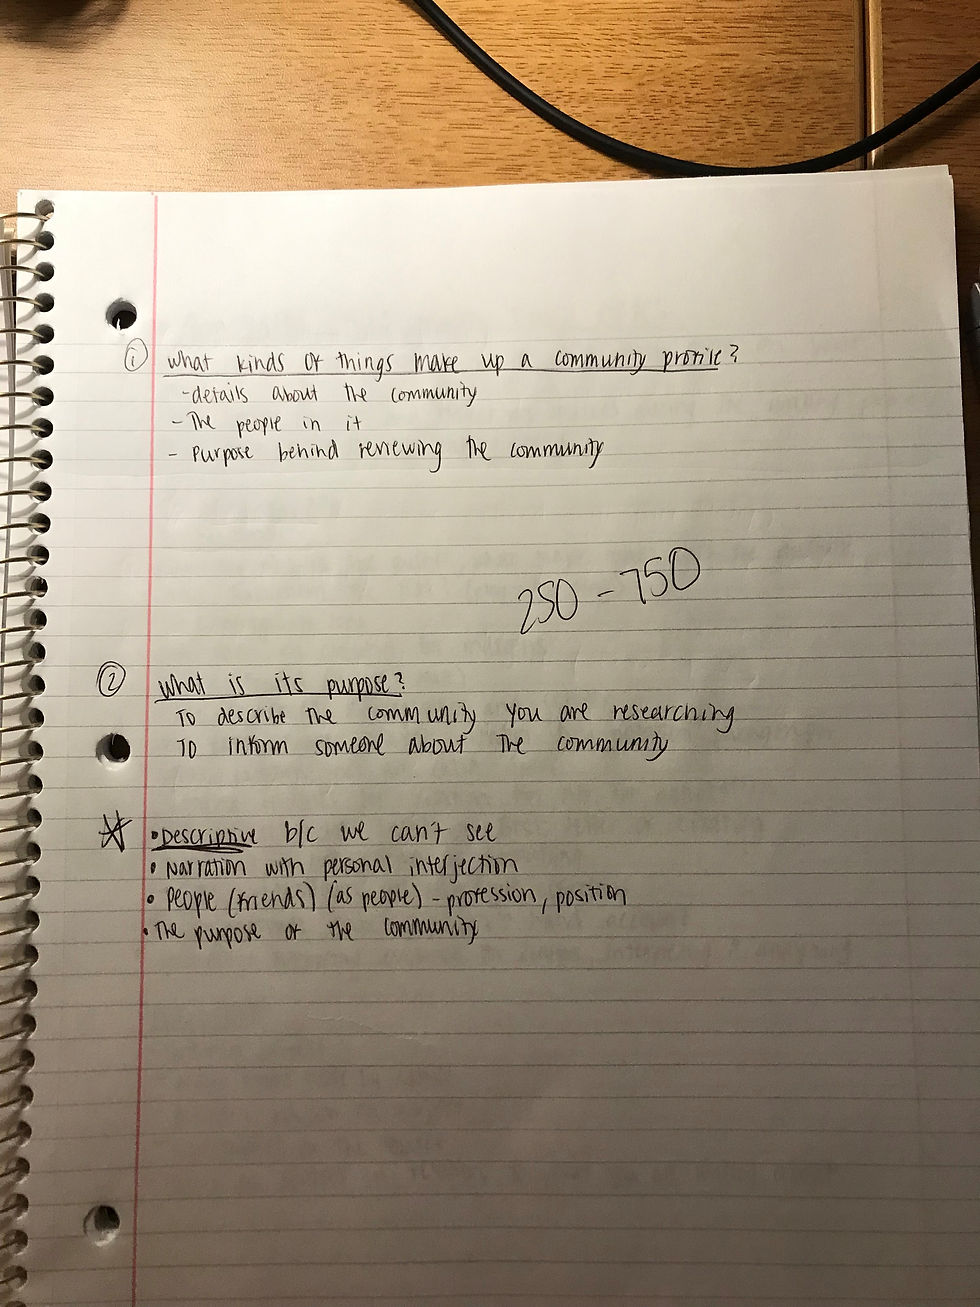 ① What kinds of things make up a community profile?
-details about the community
- The people in it
- Purpose behind reviewing the community
250 - 750
② What is its purpose?
To describe the community you are researching
To inform someone about the community
☆ • Descriptive b/c we can't see
• Narration with personal interjection
• People (friends) (as people) - profession, position
• The purpose of the community